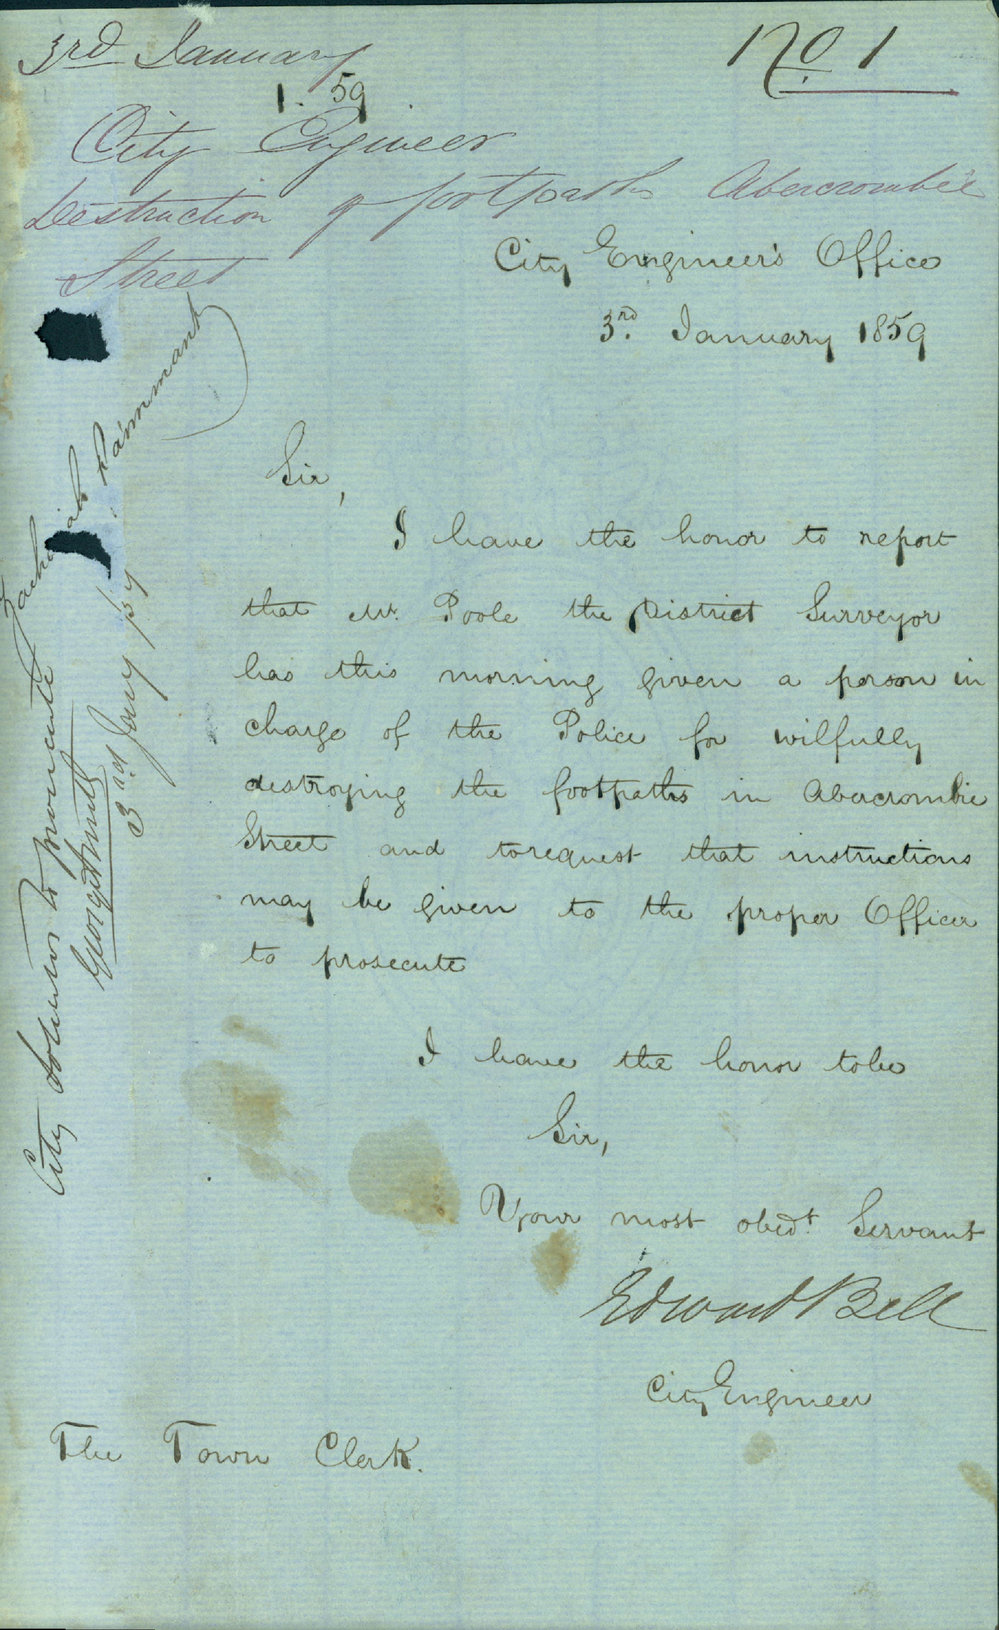 3rd January
No. 1
1. 59
City Engineer
Destruction of footpaths Abercrombie
Street
City Engineer's Office
3rd. January 1859
Sir,
I have the honor to report
that Mr. Poole the District Surveyor
has this morning given a person in
charge of the Police for wilfully
destroying the footpaths in Abercrombie
Street and to request that instructions
may be given to the proper Officer
to prosecute
I have the honor to be
Sir,
Your most obedt. Servant
Edward Bell
City Engineer
The Town Clerk.
City Solicitor to prosecute
George Smith
3rd Jany /59